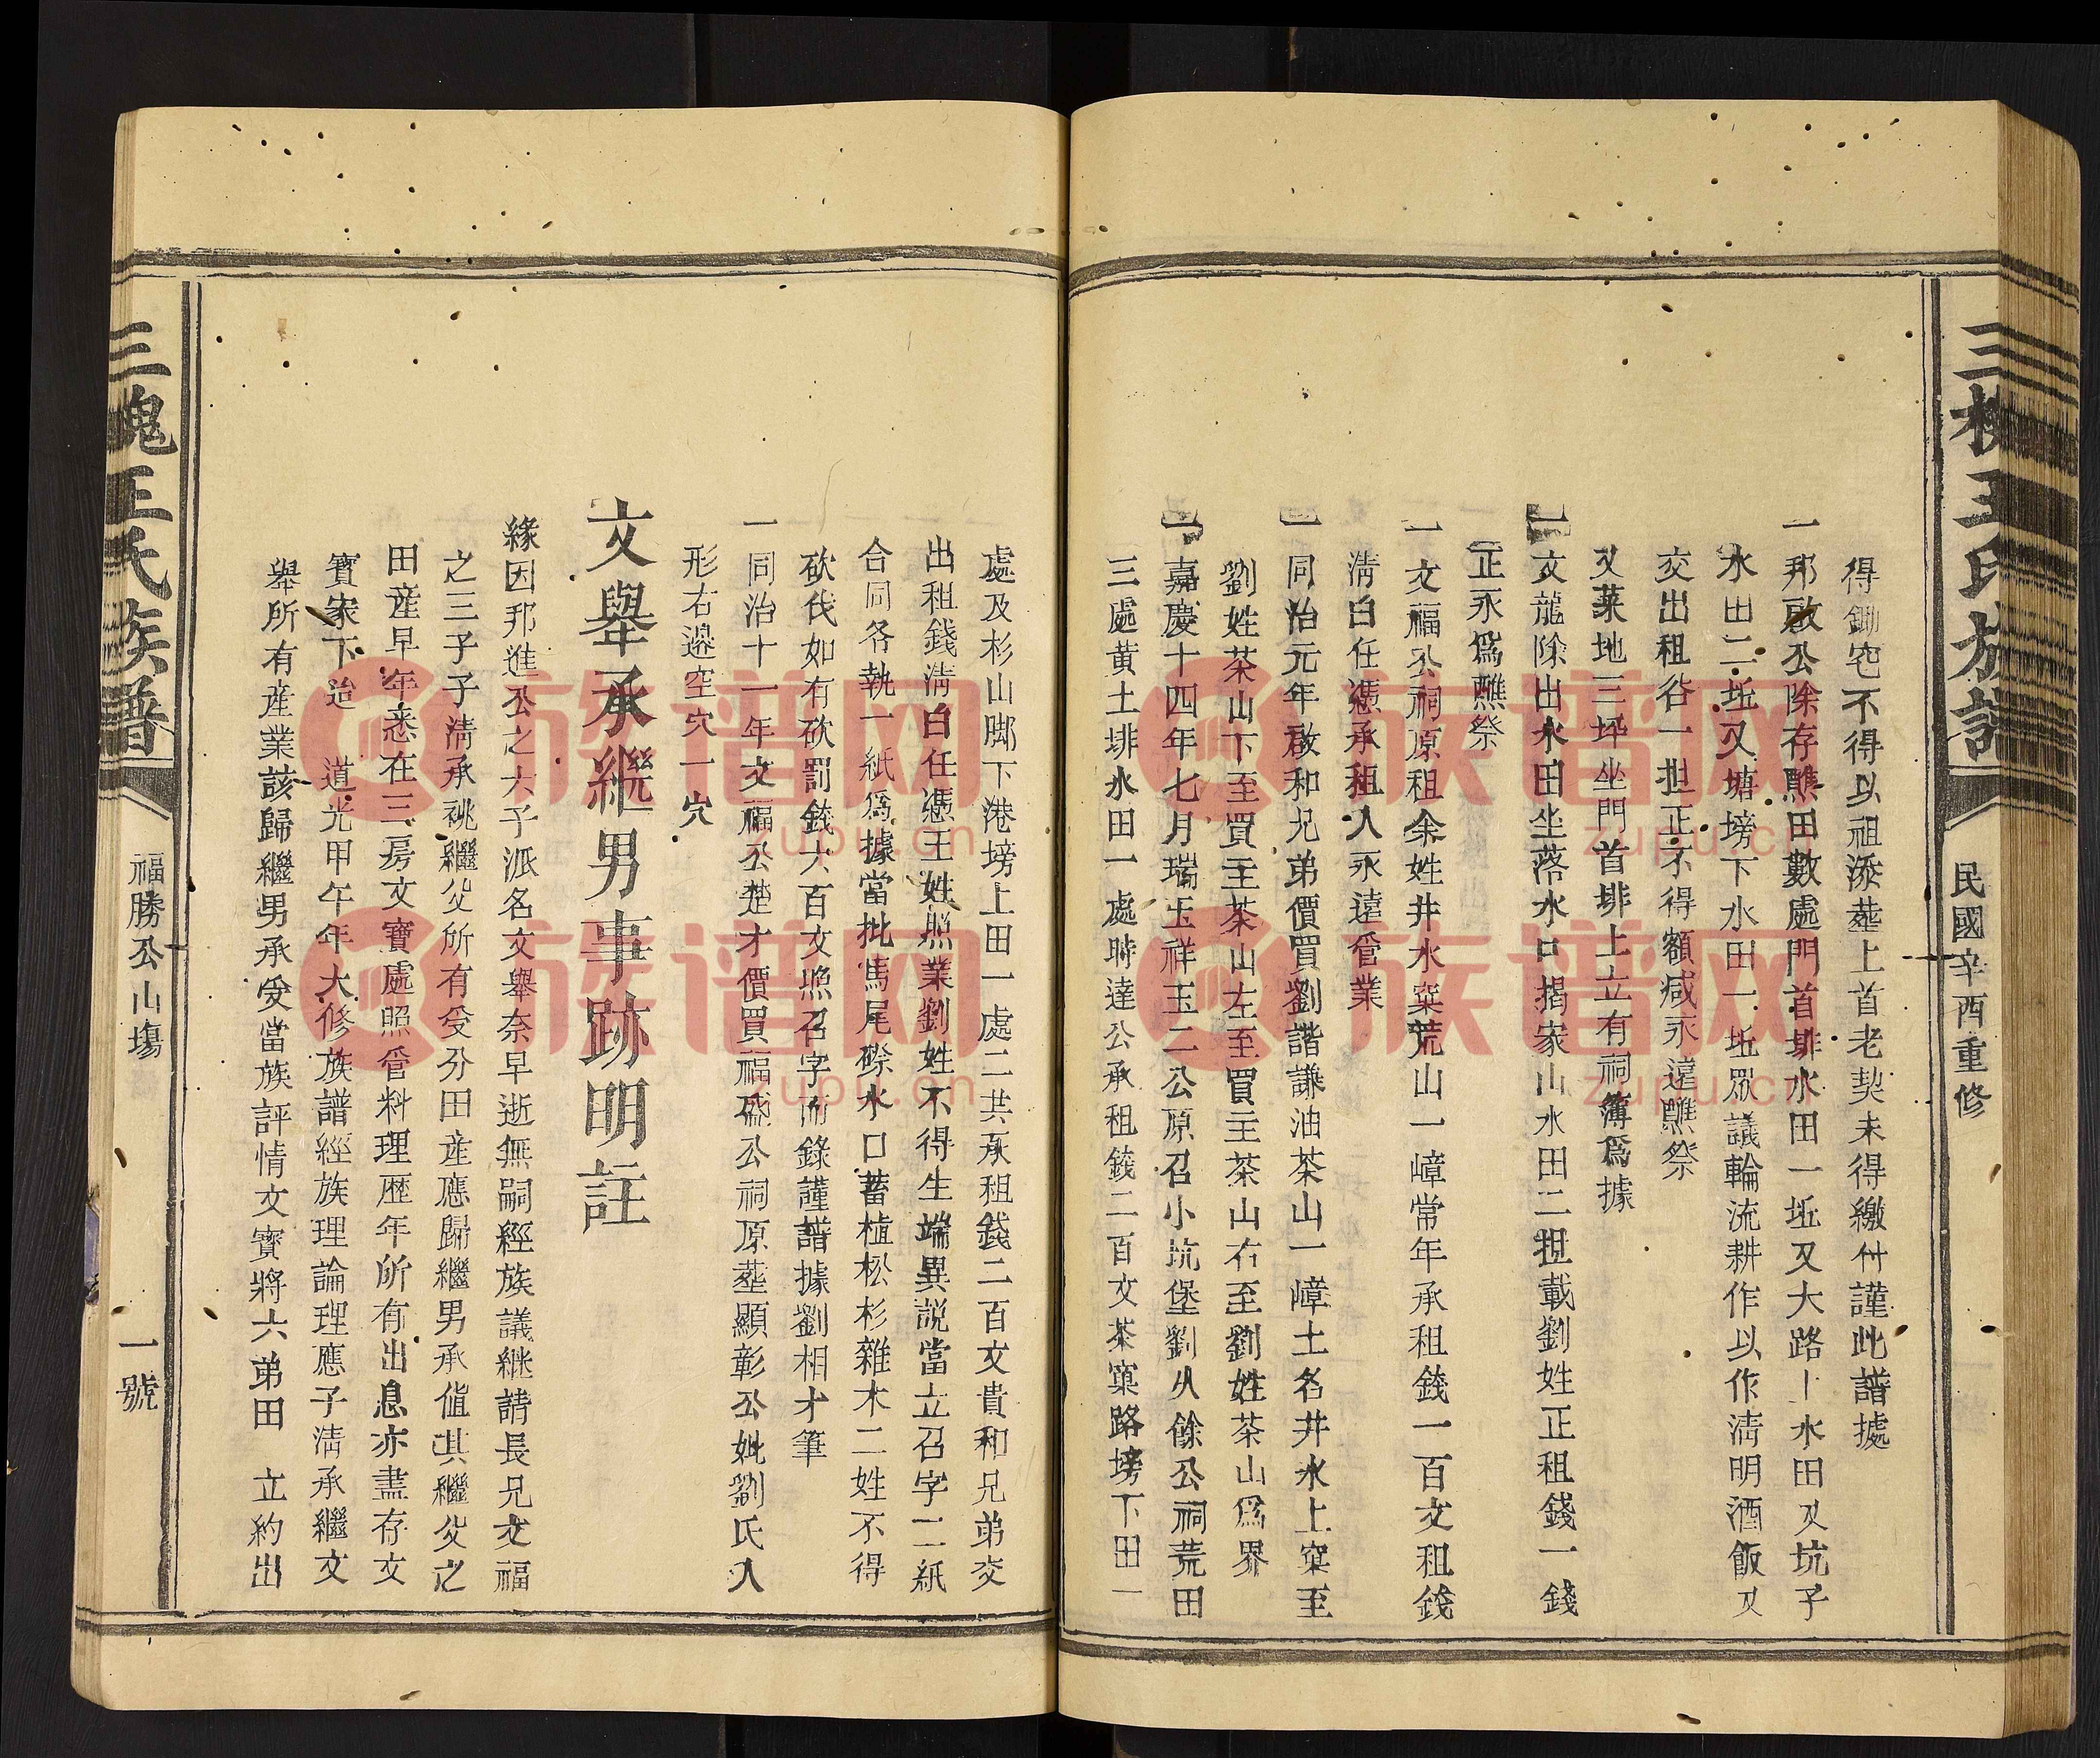 三槐王氏族譜
民國辛酉重修
得鋤穵不得以祖添塟上首老契未得繳付謹此譜㨿
一邦啟公除存醮田數處門首排水田一坵又大路上水田又坑子
水田二坵又塘塝下水田一坵眾議輪流耕作以作清明酒飯又
交出租谷一担正不得額减永遠醮祭
又菜地三坪坐門首排上立有祠簿爲據
一文龍除出水田坐落水口揭家山水田二担載劉姓正租錢一錢
正永爲醮祭
一文福公祠原租余姓井水窠荒山一嶂常年承租錢一百文租錢
清白任憑承租人永遠管業
一同治元年啟和兄弟價買劉諧謙油茶山一嶂土名井水上窠至
劉姓茶山下至買主茶山左至買主茶山右至劉姓茶山爲界
一嘉慶十四年七月瑞玉祥玉二公原召小坑堡劉从餘公祠荒田
三處黄土排水田一處時達公承租錢二百文茶窠路塝下田一
處及杉山脚下港塝上田一處二共承租錢二百文貴和兄弟交
出租錢清白任憑王姓照業劉姓不得生端異說當立召字二紙
合同各執一紙爲據當批馬尾磜水口蓄植松杉雜木二姓不得
砍伐如有砍罰錢六百文照召字而錄謹譜據劉相才筆
一同治十一年文福公楚才價買福盛公祠原塟顯彰公妣劉氏人
形右邊空穴一穴
文舉承繼男事跡明註
緣因邦進公之六子派名文舉奈早逝無嗣經族議継請長兄文福
之三子子清承祧繼父所有受分田産應歸繼男承值其繼父之
田産早年悉在三房文寶處照管料理歴年所有出息亦盡存文
寶家下迨　道光甲午年大修族譜經族理論理應子清承繼文
舉所有産業該歸繼男承受當族評情文寶將六弟田　立約出
三槐王氏族譜
福勝公山塲
一號